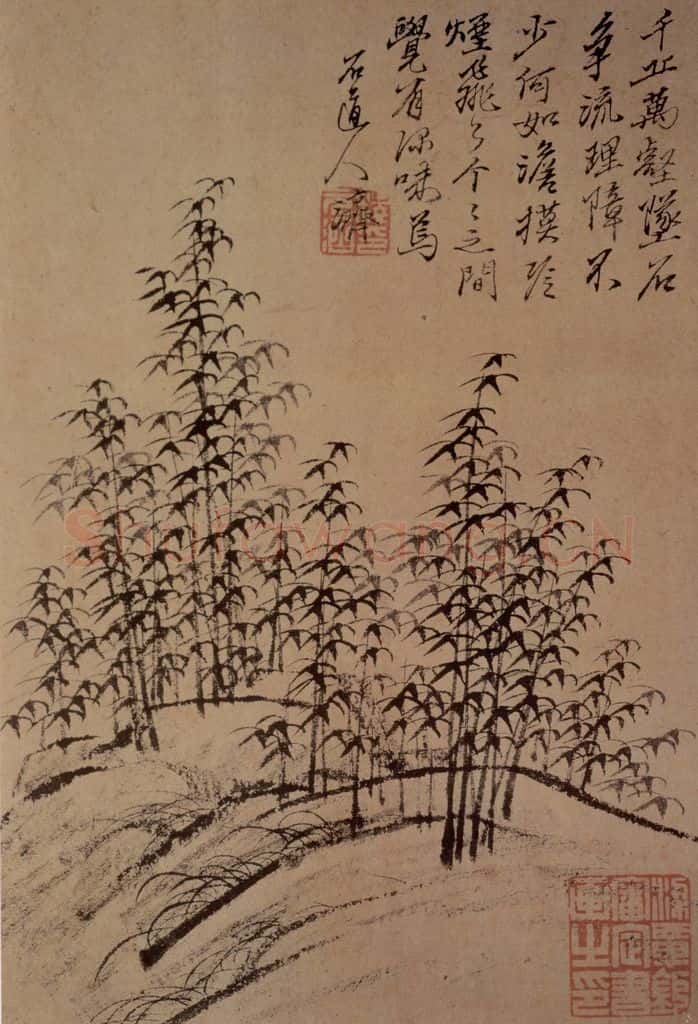 千丘萬壑墜石
爭流理障不
少何如澹摸冷
煙个〻之間
覺有深味焉
石道人濟